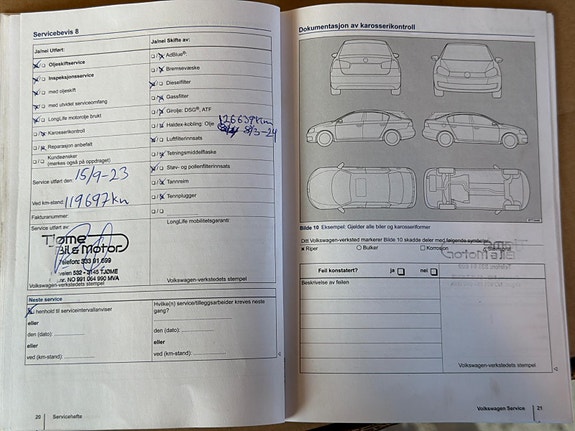 Servicebevis 8
Ja/nei Utført:
Oljeskiftservice
Inspeksjonsservice
med oljeskift
med utvidet serviceomfang
LongLife motorolje brukt
Karosserikontroll
Reparasjon anbefalt
Kundeønsker
(merkes også på oppdraget)
Service utført den: 15/9-23
Ved km-stand: 119697 km
Fakturanummer:
Service utført av:
Tjøme
Bil & Motor
Telefon: 333 91 699
veien 532 - 3145 TJØME
NO 991 064 990 MVA
Volkswagen-verkstedets stempel
Ja/nei Skifte av:
AdBlue®:
Bremsevæske
Dieselfilter
Gassfilter
Girolje: DSG®, ATF
Haldex-kobling: Olje 126639 km
8/3-24
Luftfilterinnsats
Tetningsmiddelflaske
Støv- og pollenfilterinnsats
Tannreim
Tennplugger
LongLife mobilitetsgaranti
Volkswagen-verkstedets stempel
Neste service
henhold til serviceintervallanviser
eller
den (dato):
eller
ved (km-stand):
Hvilke(n) service/tilleggsarbeider kreves neste
gang?
den (dato):
eller
ved (km-stand):
20 Servicehefte
Dokumentasjon av karosserikontroll
Bilde 10 Eksempel: Gjelder alle biler og karosseriformer
Ditt Volkswagen-verksted markerer Bilde 10 skadde deler med følgende symboler:
Riper Bulker Korrosjon
Feil konstatert? ja nei
Beskrivelse av feilen
Volkswagen-verkstedets stempel
Volkswagen Service 21